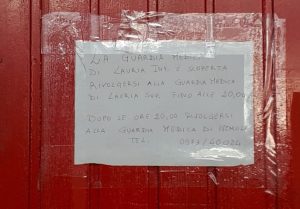 LA GUARDIA MEDICA
DI LAURIA INF. È SCOPERTA
RIVOLGERSI ALLA GUARDIA MEDICA
DI LAURIA SUP. FINO ALLE 20,00
DOPO LE ORE 20,00 RIVOLGERSI
ALLA GUARDIA MEDICA DI NEMOLI
TEL. 0973/40024